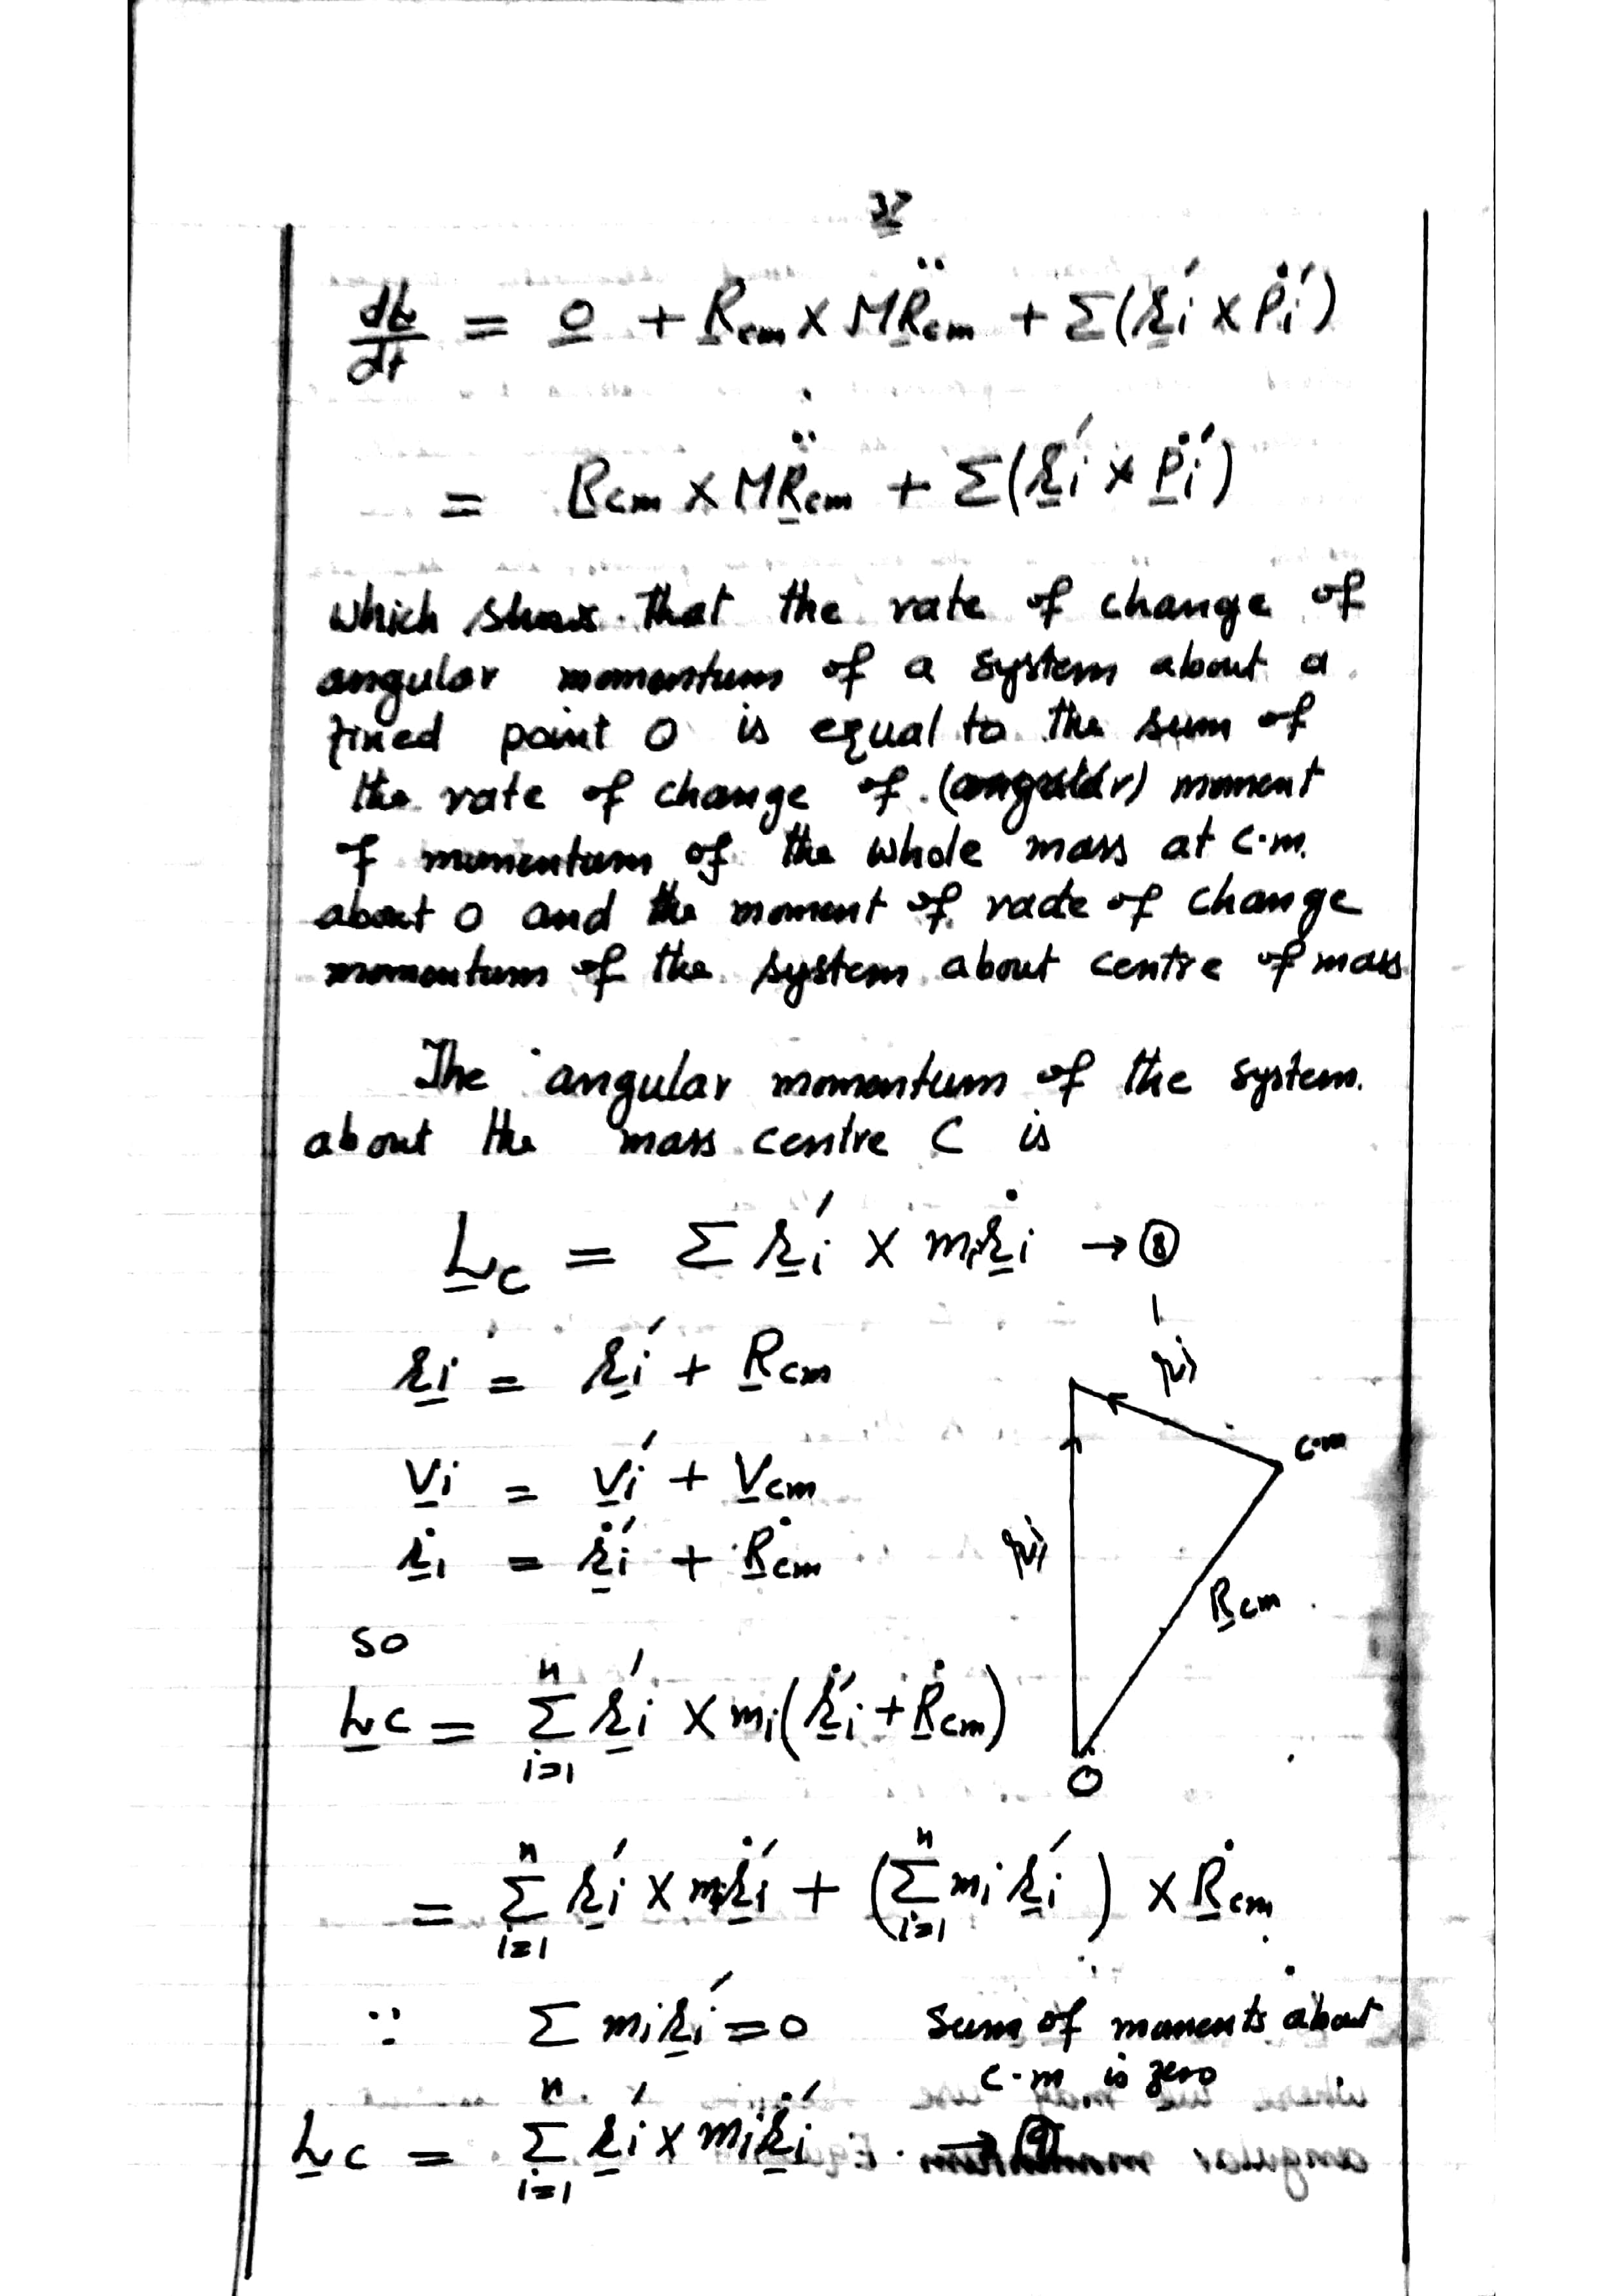 V
dL/dt = 0 + Rcm × MR̈cm + Σ(ri′ × Ṗi′)
= Rcm × MR̈cm + Σ(ri′ × Ṗi′)
which shows that the rate of change of
angular momentum of a system about a
fixed point O is equal to the sum of
the rate of change of (angular) moment
of momentum of the whole mass at c.m.
about O and the moment of rate of change
momentum of the system about centre of mass
The angular momentum of the system.
about the mass centre C is
Lc = Σ ri′ × miṙi → (8)
ri = ri′ + Rcm
ri′
c.m
Vi = Vi′ + Vcm
ṙi = ṙi′ + Ṙcm
ri
Rcm
so
Lc = Σ(i=1 to n) ri′ × mi(ṙi′ + Ṙcm)
O
= Σ(i=1 to n) ri′ × miṙi′ + (Σ(i=1 to n) mi ri′) × Ṙcm
∵ Σ miri′ = 0 sum of moments about
c.m is zero
Lc = Σ(i=1 to n) ri′ × miṙi′ → (9)